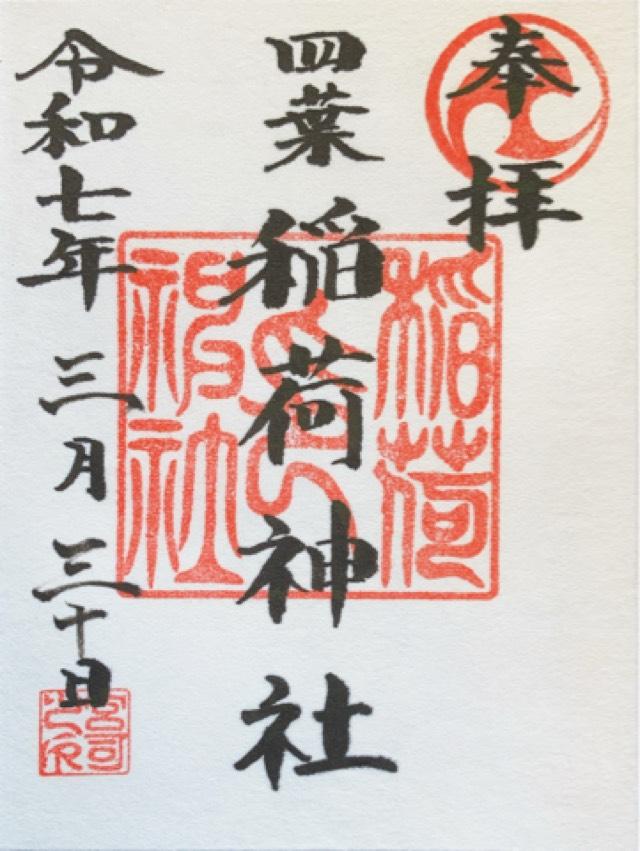 奉拝
四葉稲荷神社
令和七年三月三十日
稲荷
神社